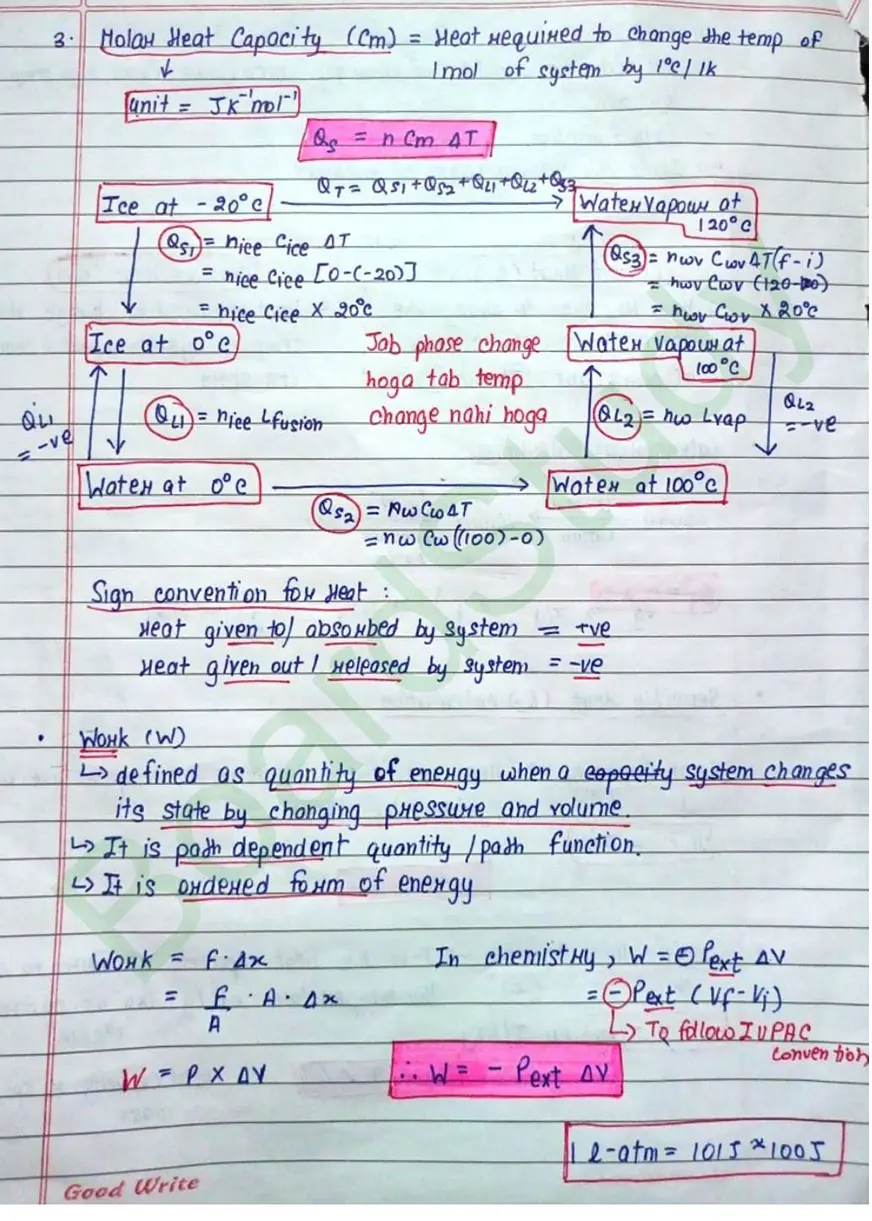 3. Molar Heat Capacity (Cm) = Heat required to change the temp of
1mol of system by 1°C/1K
unit = JK⁻¹mol⁻¹
Qs = n Cm ΔT
QT = QS1+QS2+QL1+QL2+QS3
Ice at -20°C
Water Vapour at
120°C
QS1 = nice Cice ΔT
= nice Cice [0-(-20)]
= nice Cice × 20°C
QS3 = nwv Cwv ΔT(f-i)
= nwv Cwv (120-100)
= nwv Cwv × 20°C
Ice at 0°C
Jab phase change
hoga tab temp
change nahi hoga
Water Vapour at
100°C
QL1
= -ve
QL1 = nice Lfusion
QL2 = nw Lvap
QL2
= -ve
Water at 0°C
Water at 100°C
QS2 = nw Cw ΔT
= nw Cw ((100)-0)
Sign convention for Heat :
Heat given to/ absorbed by system = +ve
Heat given out / released by system = -ve
• Work (W)
↳ defined as quantity of energy when a capacity system changes
its state by changing pressure and volume.
↳ It is path dependent quantity /path function.
↳ It is ordered form of energy
Work = f·Δx
= f/A · A · Δx
W = P × ΔV
In chemistry, W = - Pext ΔV
= - Pext (Vf-Vi)
↳ To follow IUPAC
convention
∴ W = - Pext ΔV
1 l-atm = 101J ≈ 100J
Good Write
BoardStudy